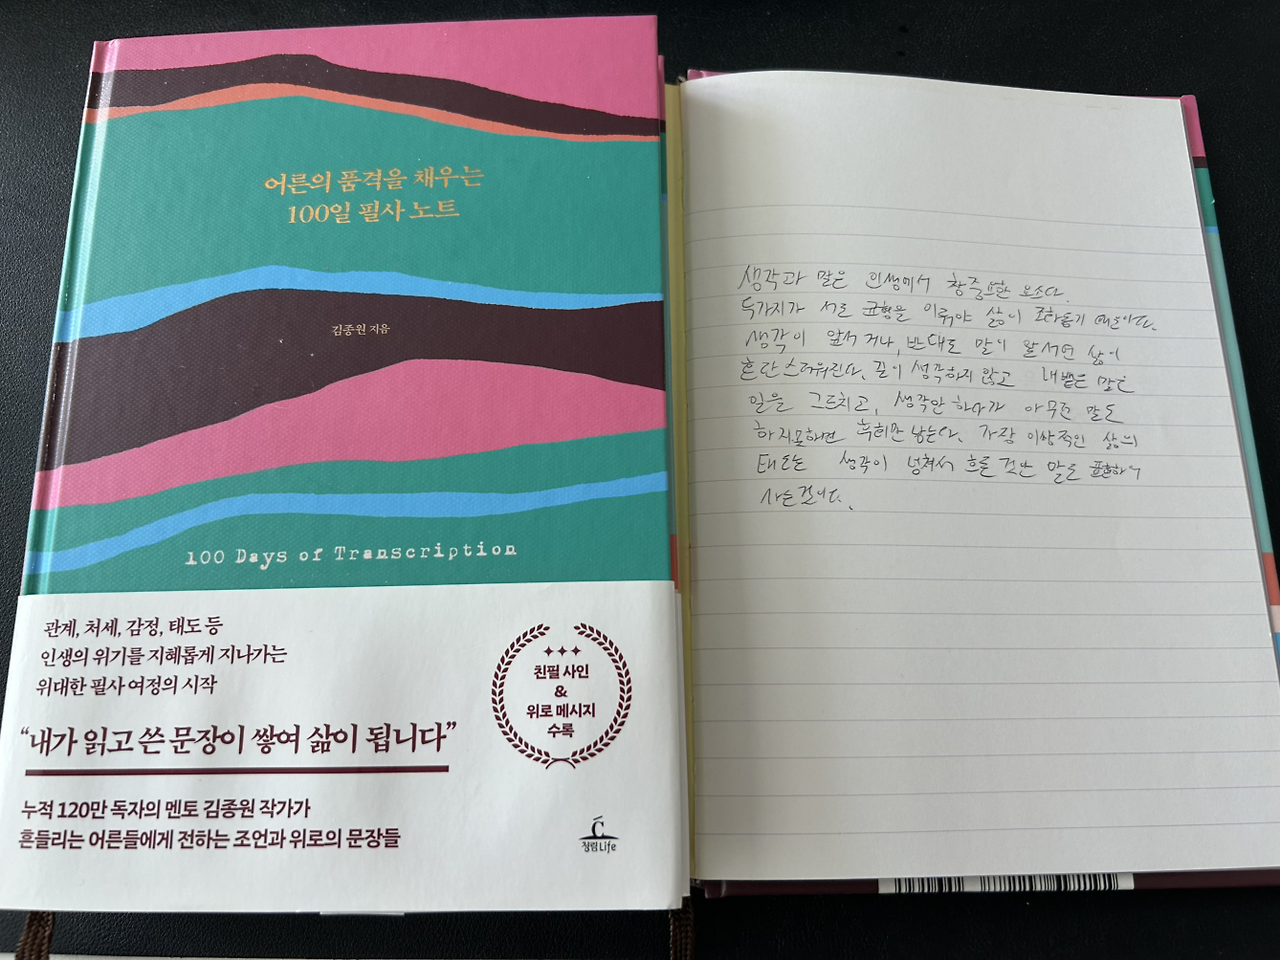 어른의 품격을 채우는
100일 필사 노트
김종원 지음
100 Days of Transcription
관계, 처세, 감정, 태도 등
인생의 위기를 지혜롭게 지나가는
위대한 필사 여정의 시작
“내가 읽고 쓴 문장이 쌓여 삶이 됩니다”
누적 120만 독자의 멘토 김종원 작가가
흔들리는 어른들에게 전하는 조언과 위로의 문장들
친필 사인
&
위로 메시지
수록
청림Life
생각과 말은 인생에서 참 중요한 요소다.
두가지가 서로 균형을 이뤄야 삶이 조화롭기 때문이다.
생각이 앞서거나, 반대로 말이 앞서면 삶이
혼란스러워진다. 깊이 생각하지 않고 내뱉은 말은
일을 그르치고, 생각만 하다가 아무런 말도
하지못하면 후회만 남는다. 가장 이상적인 삶의
태도는 생각이 넘쳐서 흐른 것만 말로 표현하며
사는것이다.